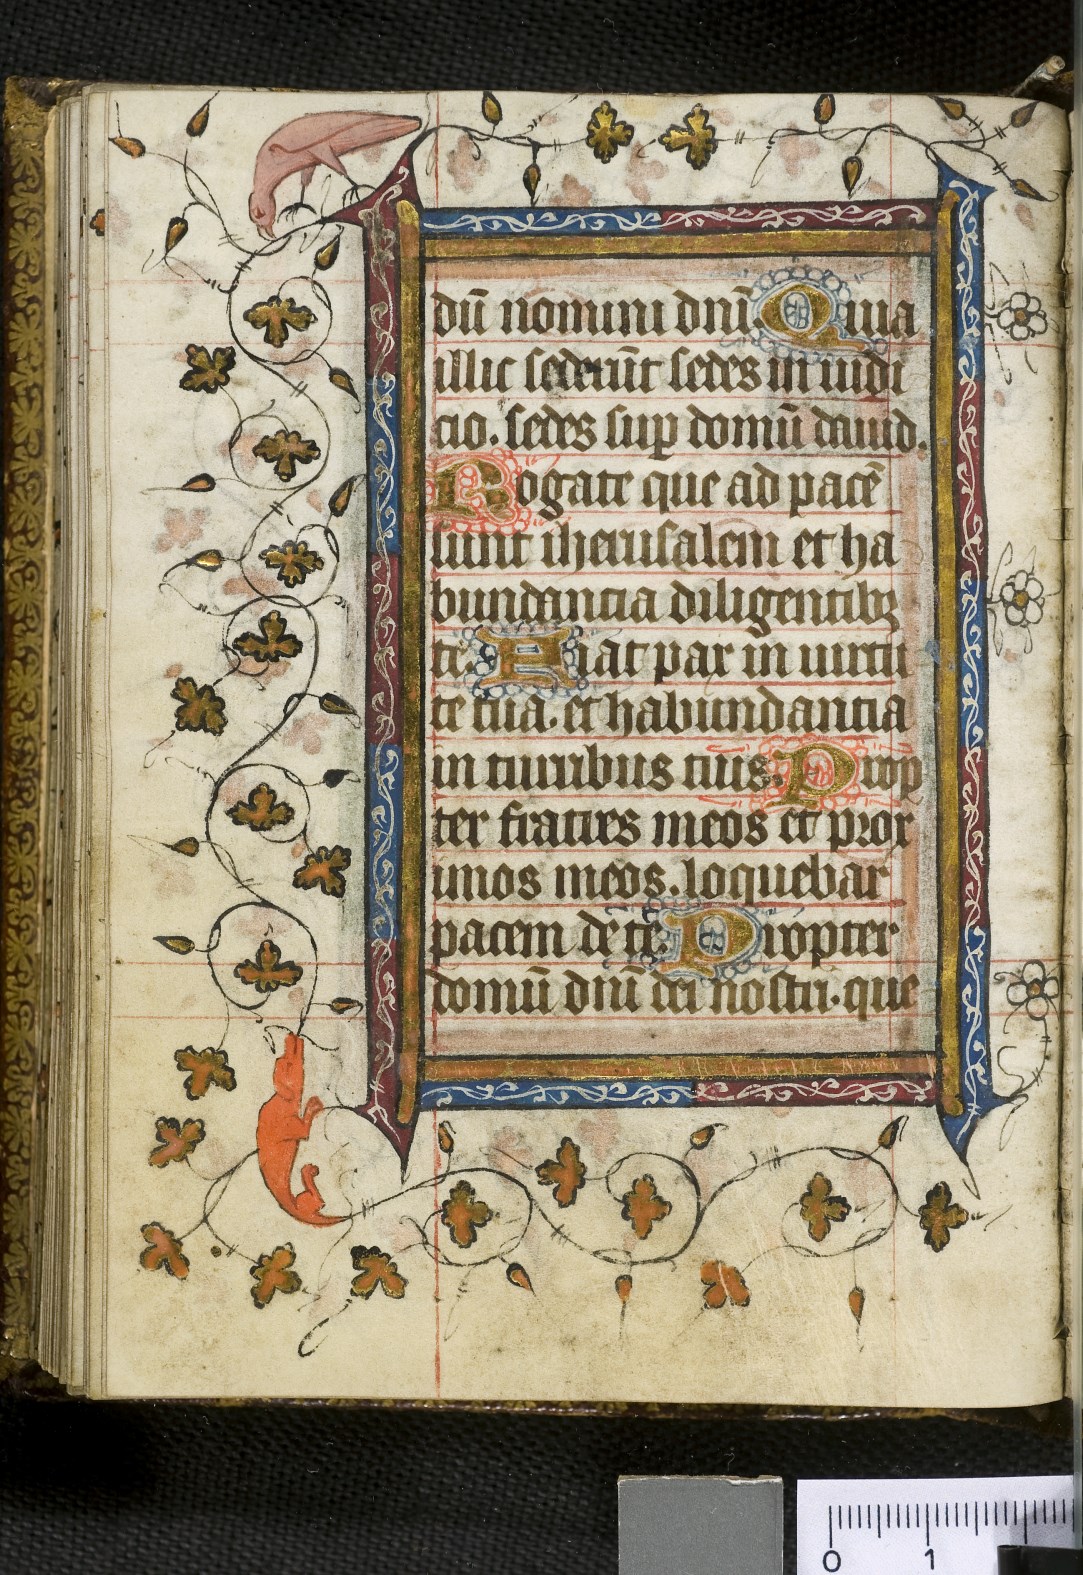 dū nomini dnī. Quia
illic sederūt sedes in iudi
cio. sedes sup domū dauid.
Rogate que ad pacē
sunt iherusalem et ha
bundantia diligentibꝫ
te. Fiat pax in uirtu
te tua. et habundantia
in turribus tuis. Prop
ter fratres meos et prox
imos meos. loquebar
pacem de te. Propter
domū dnī dei nostri. que
0 1